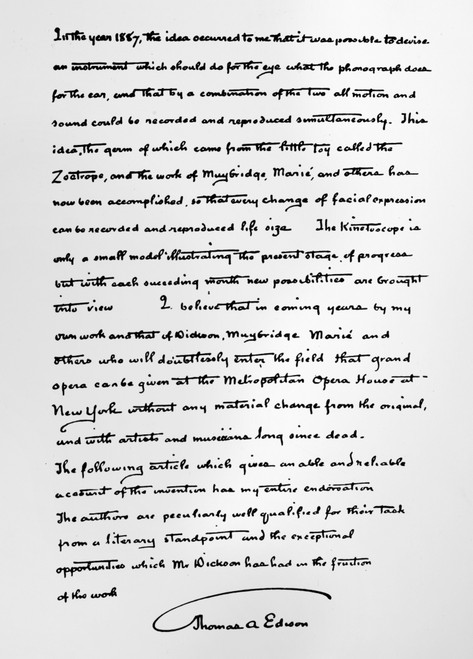 In the year 1887, the idea occurred to me that it was possible to devise
an instrument which should do for the eye what the phonograph does
for the ear, and that by a combination of the two all motion and
sound could be recorded and reproduced simultaneously. This
idea, the germ of which came from the little toy called the
Zoetrope, and the work of Muybridge, Marié, and others has
now been accomplished, so that every change of facial expression
can be recorded and reproduced life size The Kinetoscope is
only a small model illustrating the present stage of progress
but with each suceeding month new possibilities are brought
into view I believe that in coming years by my
own work and that of Dickson, Muybridge Marié and
others who will doubtlessly enter the field that grand
opera can be given at the Metropolitan Opera House at
New York without any material change from the original,
and with artists and musicians long since dead.
The following article which gives an able and reliable
account of the invention has my entire endorsation
The authors are peculiarly well qualified for their task
from a literary standpoint and the exceptional
opportunities which Mr Dickson has had in the fruition
of the work
Thomas A Edison